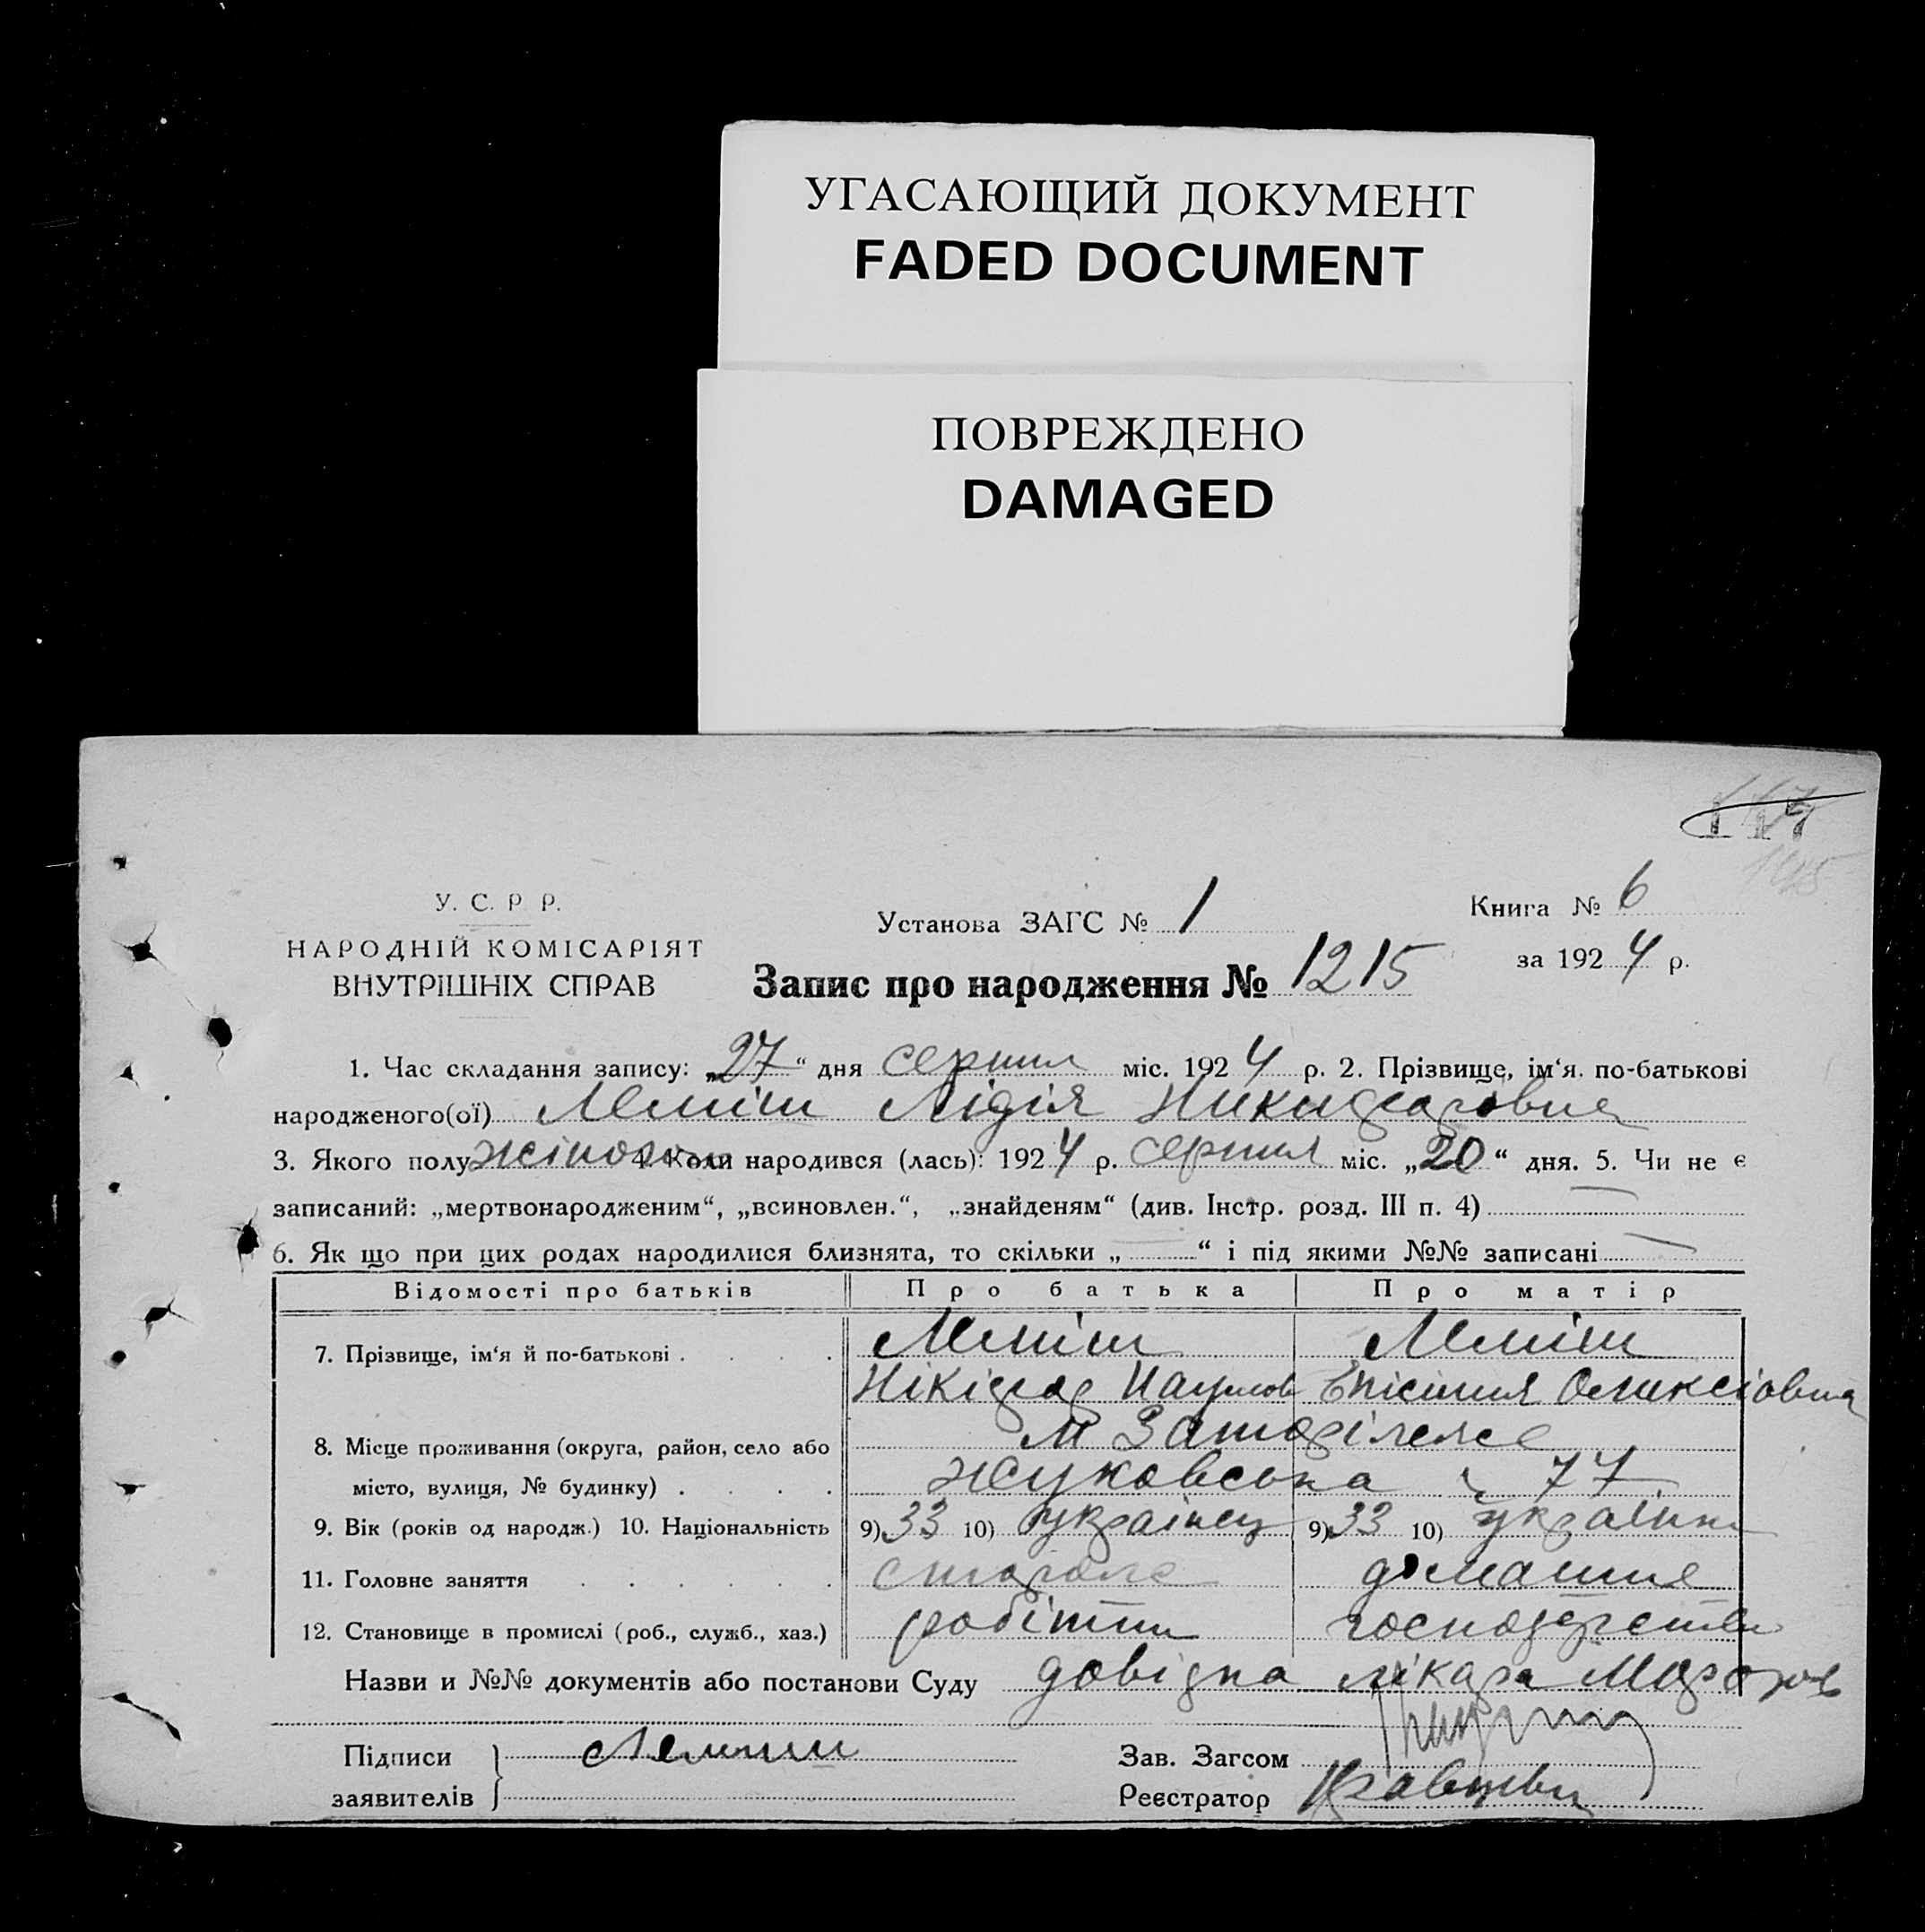 УГАСАЮЩИЙ ДОКУМЕНТ
FADED DOCUMENT
ПОВРЕЖДЕНО
DAMAGED
117
У. С. Р Р.
НАРОДНІЙ КОМІСАРІЯТ
ВНУТРІШНІХ СПРАВ
Установа ЗАГС № 1
Книга № 6
за 1924 р.
Запис про народження № 1215
1. Час складання запису: „27“ дня серпня міс. 1924 р. 2. Прізвище, ім‘я. по-батькові
народженого(ої) Леміш Лідія Никифоровна
3. Якого полу жіночи 4. Коли народився (лась): 1924 р. серпня міс. „20“ дня. 5. Чи не є
записаний: „мертвонародженим“, „всиновлен.“, „знайденям“ (див. Інстр. розд. III п. 4) —
6. Як що при цих родах народилися близнята, то скільки „—“ і під якими №№ записані —
Відомості про батьків Про батька Про матір
7. Прізвище, ім‘я й по-батькові . . . . . Леміш Леміш
Наумов Олексіовна
8. Місце проживання (округа, район, село або м
місто, вулиця, № будинку) . . . . Жуковська 77
9. Вік (років од народж.) 10. Національність 9) 33 10) українец 9) 33 10) українка
11. Головне заняття . . . . . . столяр домашнє
12. Становище в промислі (роб., служб., хаз.) робітни господарство
Назви и №№ документів або постанови Суду довідка лікаря
Підписи Леміш Зав. Загсом
заявителів Реєстратор